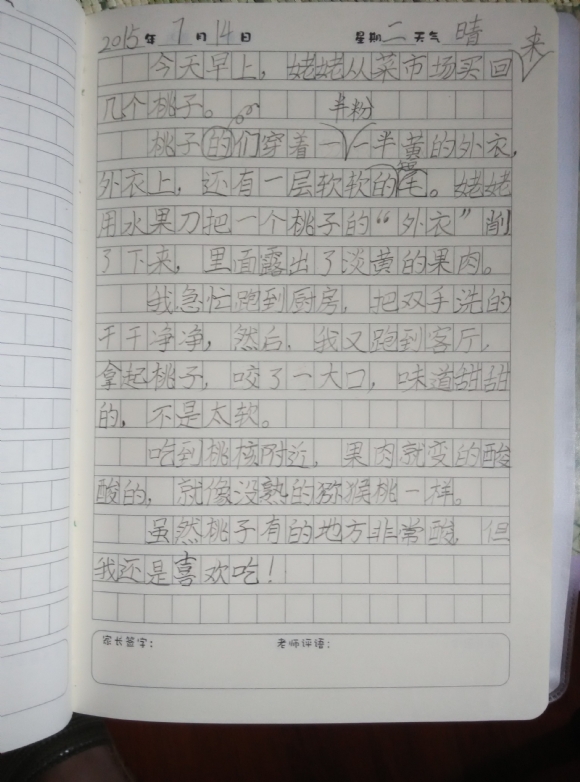 2015年7月14日 星期二 天气 晴
今天早上，姥姥从菜市场买回来
几个桃子。
桃子的们穿着一半粉一半黄的外衣，
外衣上，还有一层软软的毛。姥姥
用水果刀把一个桃子的“外衣”削
了下来，里面露出了淡黄的果肉。
我急忙跑到厨房，把双手洗的
干干净净，然后，我又跑到客厅，
拿起桃子，咬了一大口，味道甜甜
的，不是太软。
吃到桃核附近，果肉就变的酸
酸的，就像没熟的猕猴桃一样。
虽然桃子有的地方非常酸，但
我还是喜欢吃！
家长签字： 老师评语：